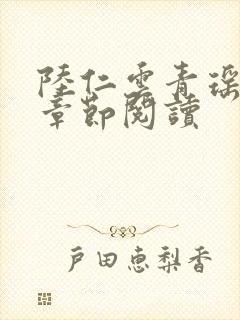 陸仁雲青瑶
章節閱讀
戸田恵梨香